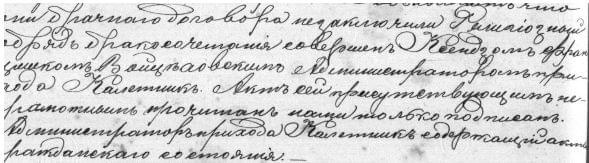 ми брачнаго договора незаключили Религіозный
обрядъ бракосочетанія совершенъ Ксендзомъ Фран
цишкомъ Войцѣховскимъ Администраторомъ при-
хода Калетникъ. Актъ сей присутствующимъ не-
грамотнымъ прочитанъ нами только подписанъ.
Администраторъ прихода Калетникъ содержащій акты
гражданскаго состоянія. —